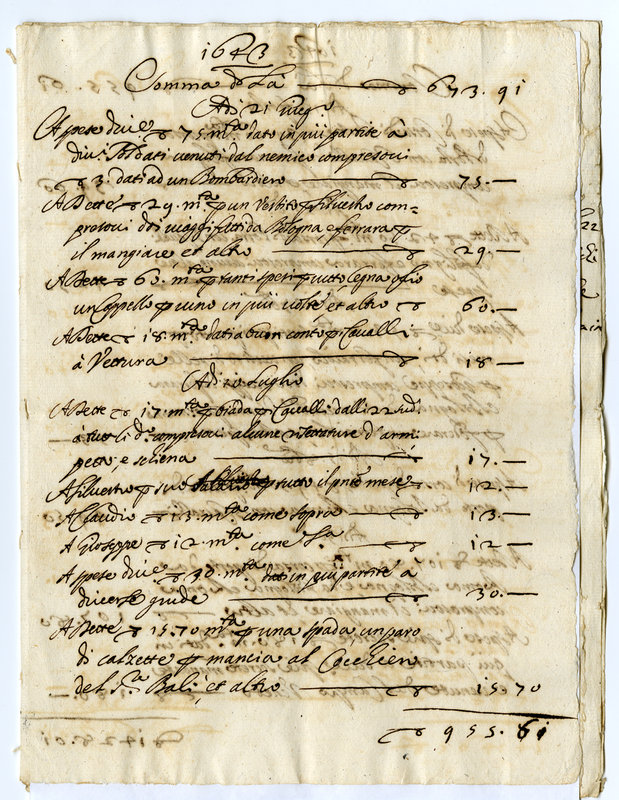 1643
Somma di là 673.91
Adi 21 Giug.o
A spese dive 75 m.ta dato in più partite à
div.i soldati venuti dal nemico compresovi
3. dati ad un Bombardiero 75.—
A Dette 29. m.ta p un Vestito p Silvestro com=
presovi doi viaggi fatti da Bologna, e ferrara p
il mangiare et altro 29.—
A Dette 60. m.ta p tanti spesi p
un Cappello p uno in più volte et altro 60.—
A Dette 18 m.ta dati a buon conto p Cavalli
à Vettura 18—
Adi 10 Luglio
A Dette 17. m.ta p biada p Cavalli dalli 22
à tutto li d.o compresovi alcune d'armi
petto, e schena 17.—
A Silvestro p suo p tutto il pnte mese 12.—
A Claudio 13. m.ta come sopra 13—
A Gioseppe 12 m.ta come S.a 12—
A spese dive 30. m.ta dati in più partite a
diverse guide 30.—
A Dette 15.70 m.ta p una spada un paro
di calzette p mancia al Cocchiero
del S.r Balì et altro 15.70
955.61